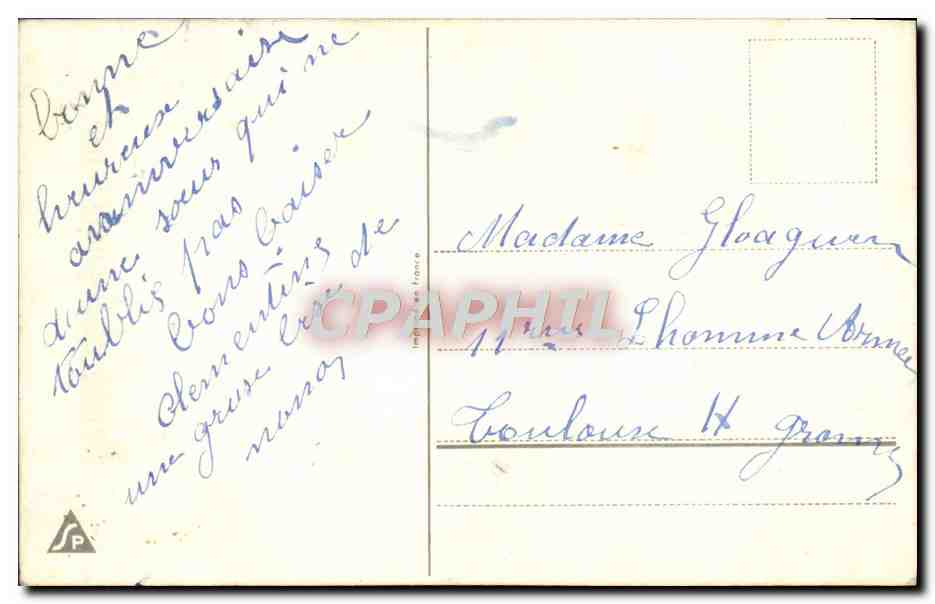 bonne
et
heureux
anniversaire
d'une soeur qui ne
t'oublie pas
bons baiser
clementine
une grose bise de
nonor
Imprimé en France
CPAPHIL
Madame Gloaguen
11 rue L'homme Armé
Toulouse H
SP